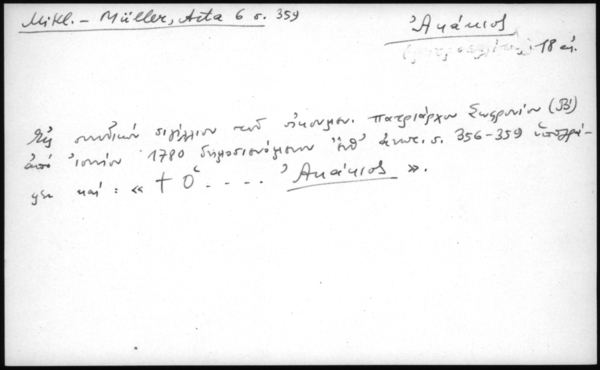 Mikl. – Müller, Acta 6 σ. 359
Ἀκάκιος
18 αἰ.
Εἰς συνοδικὸν σιγίλλιον τοῦ οἰκουμεν. πατριάρχου Σωφρονίου (Β΄)
ἀπὸ Ἰουνίου 1780 δημοσιευόμενον ἔνθ' ἀνωτ. σ. 356–359 ὑπογρά-
φει καὶ : « † Ὁ ..... Ἀκάκιος ».